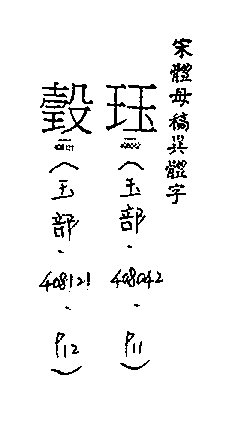 宋體母稿異體字
珏
(玉部.408042.P11)
瑴
(玉部.408121.P12)